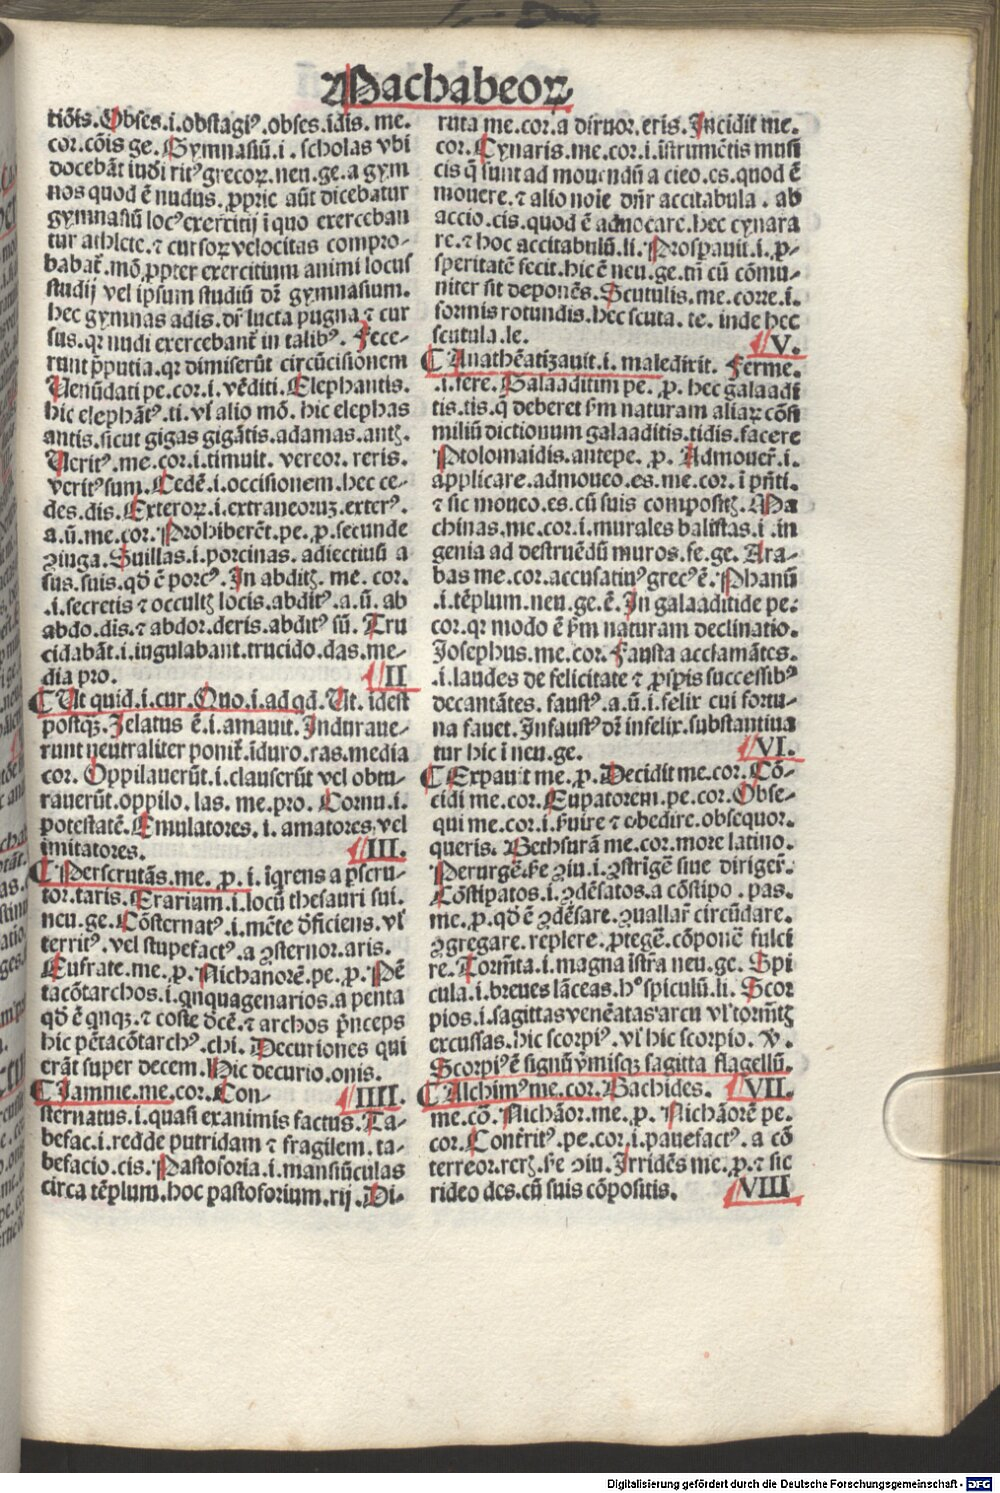 Machabeoꝝ
tiōis. Obses .i. obstagiꝰ. obses. idis. me.
cor. cōis ge. Gymnasiū .i. scholas vbi
docebāt iuđi ritꝰ grecoꝝ. neu. ge. a gym
nos quod ē nudus. ꝓprie aūt dicebatur
gymnasiū locꝰ exercitij ī quo exerceban
tur athlete. ⁊ cursoꝝ velocitas compro-
babat̄. mō ꝓpter exercitium animi locus
studij vel ipsum studiū dr̄ gymnasium.
hec gymnas adis. dr̄ lucta pugna ⁊ cur
sus. qꝛ nudi exercebant̄ in talibꝰ. Fece-
runt p̄putia. qꝛ dimiserūt circūcisionem
Uenūdati pe. cor. i. vēditi. Elephantis.
hic elephātꝰ. ti. vl̓ alio mō. hic elephas
antis. sicut gigas gigātis. adamas. antꝭ.
Ueritꝰ. me. cor. i. timuit. vereor. reris.
veritꝰ sum. Cedē. i. occisionem. hec ce-
des. dis. Exteroꝝ. i. extraneorum. exterꝰ.
a. ū. me. cor. Prohiberēt. pe. ꝓ. secunde
ꝯiuga. Suillas. i. porcinas. adiectiuū a
sus. suis. qđ ē porcꝰ. In abditꝭ. me. cor.
.i. secretis ⁊ occultꝭ locis. abditꝰ. a. ū. ab
abdo. dis. ⁊ abdor. deris. abditꝰ sū. Tru
cidabāt. i. iugulabant. trucido. das. me-
dia pro. II
Ut quid. i. cur. Quo. i. ad qđ. Ut. idest
postqꝫ. Zelatus ē. i. amauit. Indurauе-
runt neutraliter ponit̄. īduro. ras. media
cor. Oppilauerūt. i. clauserūt vel obtu-
rauerūt. oppilo. las. me. pro. Cornu. i.
potestatē. Emulatores. i. amatores, vel
imitatores. III.
Perscrutās. me. ꝓ. i. īqrens a ꝑscru-
tor. taris. Erarium. i. locū thesauri sui.
neu. ge. Cōsternatꝰ. i. mēte d̓ficiens. vl̓
territꝰ. vel stupefactꝰ. a ꝯsternor. aris.
Eufrate. me. ꝓ. Nichanorē. pe. ꝓ. Pē
tacōtarchos. i. qnquagenarios. a penta
qđ ē qnqꝫ. ⁊ coste d̓cē. ⁊ archos p̄nceps
hic pētacōtarchꝰ. chi. Decuriones qui
erāt super decem. Hic decurio. onis.
Jamnie. me. cor. Con- IIII.
sternatus. i. quasi exanimis factus. Ta-
befac. i. redde putridam ⁊ fragilem. ta-
befacio. cis. Pastoforia. i. mansiūculas
circa tēplum. hoc pastoforium. rij. Di-
ruta me. cor. a diruor. eris. Incidit me.
cor. Cynaris. me. cor. i. īstrumētis musi
cis q̄ sunt ad mouendū a cieo. es. quod ē
mouere. ⁊ alio noīe dn̄r accitabula. ab
accio. cis. quod ē aduocare. hec cynara
re. ⁊ hoc accitabulū. li. Prosꝑauit. i. ꝓ-
speritatē fecit. hic ē neu. ge. tn̄ cū cōmu-
niter sit deponēs. Scutulis. me. corre. i.
formis rotundis. hec scuta. te. inde hec
scutula. le. V.
Anathēatizauit. i. maledixit. Ferme.
.i. fere. Galaaditim pe. ꝓ. hec galaadi
tis. tis. q̄ deberet ẜm naturam aliaꝝ cōsi
miliū dictionum galaaditis. tidis. facere
Ptolomaidis. antepe. ꝓ. Admouer̄. i.
applicare. admoueo. es. me. cor. ī pn̄ti.
⁊ sic moueo. es. cū suis compositꝭ. Ma
chinas. me. cor. i. murales balistas. i. in
genia ad destruēdū muros. fe. ge. Ara-
bas me. cor. accusatiuꝰ grecꝰ ē. Phanū
.i. tēplum. neu. ge. ē. In galaaditide pe.
cor. qꝛ modo ē ẜm naturam declinatio.
Josephus. me. cor. Fausta acclamātes.
.i. laudes de felicitate ⁊ ꝓsꝑis successibꝰ
decantātes. faustꝰ. a. ū. i. felix cui fortu-
na fauet. Infaustꝰ dr̄ infelix. substantiua
tur hic ī neu. ge. VI.
Expauit me. ꝓ. Decidit me. cor. Cō-
cidi me. cor. Eupatorem. pe. cor. Obse-
qui me. cor. i. ẜuire ⁊ obedire. obsequor.
queris. Bethsurā me. cor. more latino.
Perurgē. ẜe ꝯiu. i. ꝯstrīgē siue dirigeř.
Cōstipatos. i. ꝯdēsatos. a cōstipo. pas.
me. ꝓ. qđ ē ꝯdēsare. ꝯuallař circūdare.
ꝯgregare. replere. ꝓtegē. cōponē fulci
re. Tormēta. i. magna īstra neu. ge. Spi
cula. i. breues lāceas. hᵒ spiculū. li. Scor
pios. i. sagittas venēatas arcu vl̓ tormētꝭ
excussas. hic scorpiꝰ. vl̓ hic scorpio. v̄.
Scorpiꝰ ē signū v̓misqꝫ sagitta flagellū.
Alchimꝰ me. cor. Bachides. VII.
me. cō. Nichāor. me. ꝓ. Nichāorē pe.
cor. Conter̄itꝰ. pe. cor. i. pauefactꝰ. a cō
terreor. rerꝭ. ẜe ꝯiu. Irridēs me. ꝓ. ⁊ sic
rideo des. cū suis cōpositis. VIII
Digitalisierung gefördert durch die Deutsche Forschungsgemeinschaft - DFG